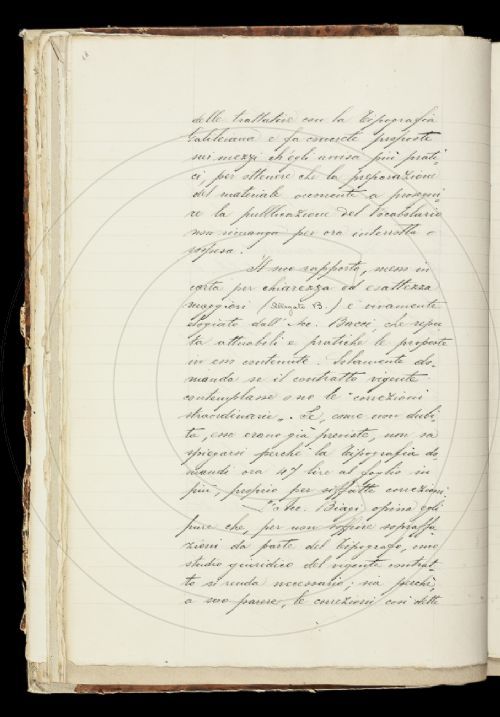 delle trattative con la Tipografia
Galileiana e fa concrete proposte
sui mezzi ch'egli avvisa più prati-
ci, per ottenere che la preparazione
del materiale occorrente a prosegui-
re la pubblicazione del Vocabolario
non rimanga per ora interrotta o
sospesa.
Il suo rapporto, messo in
carta per chiarezza ed esattezza
maggiori (Allegato B.) è vivamente
elogiato dall'Arc. Bacci, che repu-
ta attuabili e pratiche le proposte
in esso contenute. Solamente do-
manda se il contratto vigente
contemplasse o no le "correzioni
straordinarie". Se, come non dubi-
ta, esse erano già previste, non sa
spiegarsi perché la Tipografia do-
mandi ora 47 lire al foglio in
più, proprio per siffatte correzioni.
L'Arc. Biagi opina egli
pure che, per non soffrire sopraffa-
zioni da parte del tipografo, uno
studio giuridico del vigente contrat-
to si renda necessario; sia perchè,
a suo parere, le correzioni così dette